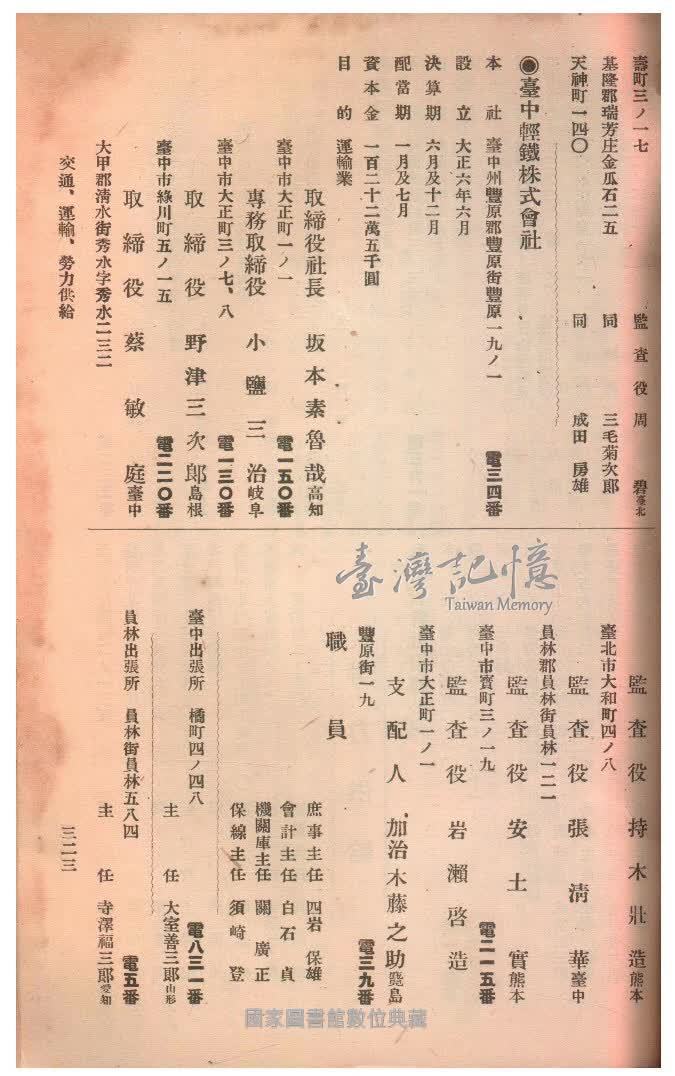 壽町三ノ一七
監查役 周 碧 臺北
基隆郡瑞芳庄金瓜石二五
同 三毛菊次郎
天神町一四〇
同 成田 房雄
◉臺中輕鐵株式會社
本社 臺中州豐原郡豐原街豐原一九ノ一 電三四番
設立 大正六年六月
決算期 六月及十二月
配當期 一月及七月
資本金 一百二十二萬五千圓
目的 運輸業
取締役社長 坂本素魯哉 高知
臺中市大正町一ノ一 電一五〇番
專務取締役 小鹽三治 岐阜
臺中市大正町三ノ七、八 電一三〇番
取締役 野津三次郎 島根
臺中市綠川町五ノ一五 電二二〇番
取締役 蔡敏庭 臺中
大甲郡清水街秀水字秀水二三二
交通、運輸、勞力供給
監查役 持木壯造 熊本
臺北市大和町四ノ八
監查役 張清華 臺中
員林郡員林街員林一二一
監查役 安土實 熊本
臺中市寶町三ノ一九 電二一五番
監查役 岩瀨啓造
臺中市大正町一ノ一
支配人 加治木藤之助 鹿島
豐原街一九 電三九番
職員
庶事主任 四岩保雄
會計主任 白石貞
機關庫主任 關廣正
保線主任 須崎登
臺中出張所 橘町四ノ四八 電八三一番
主任 大室善三郎 山形
員林出張所 員林街員林五八四 電五番
主任 寺澤福三郎 愛知
三二三
臺灣記憶
Taiwan Memory
國家圖書館數位典藏